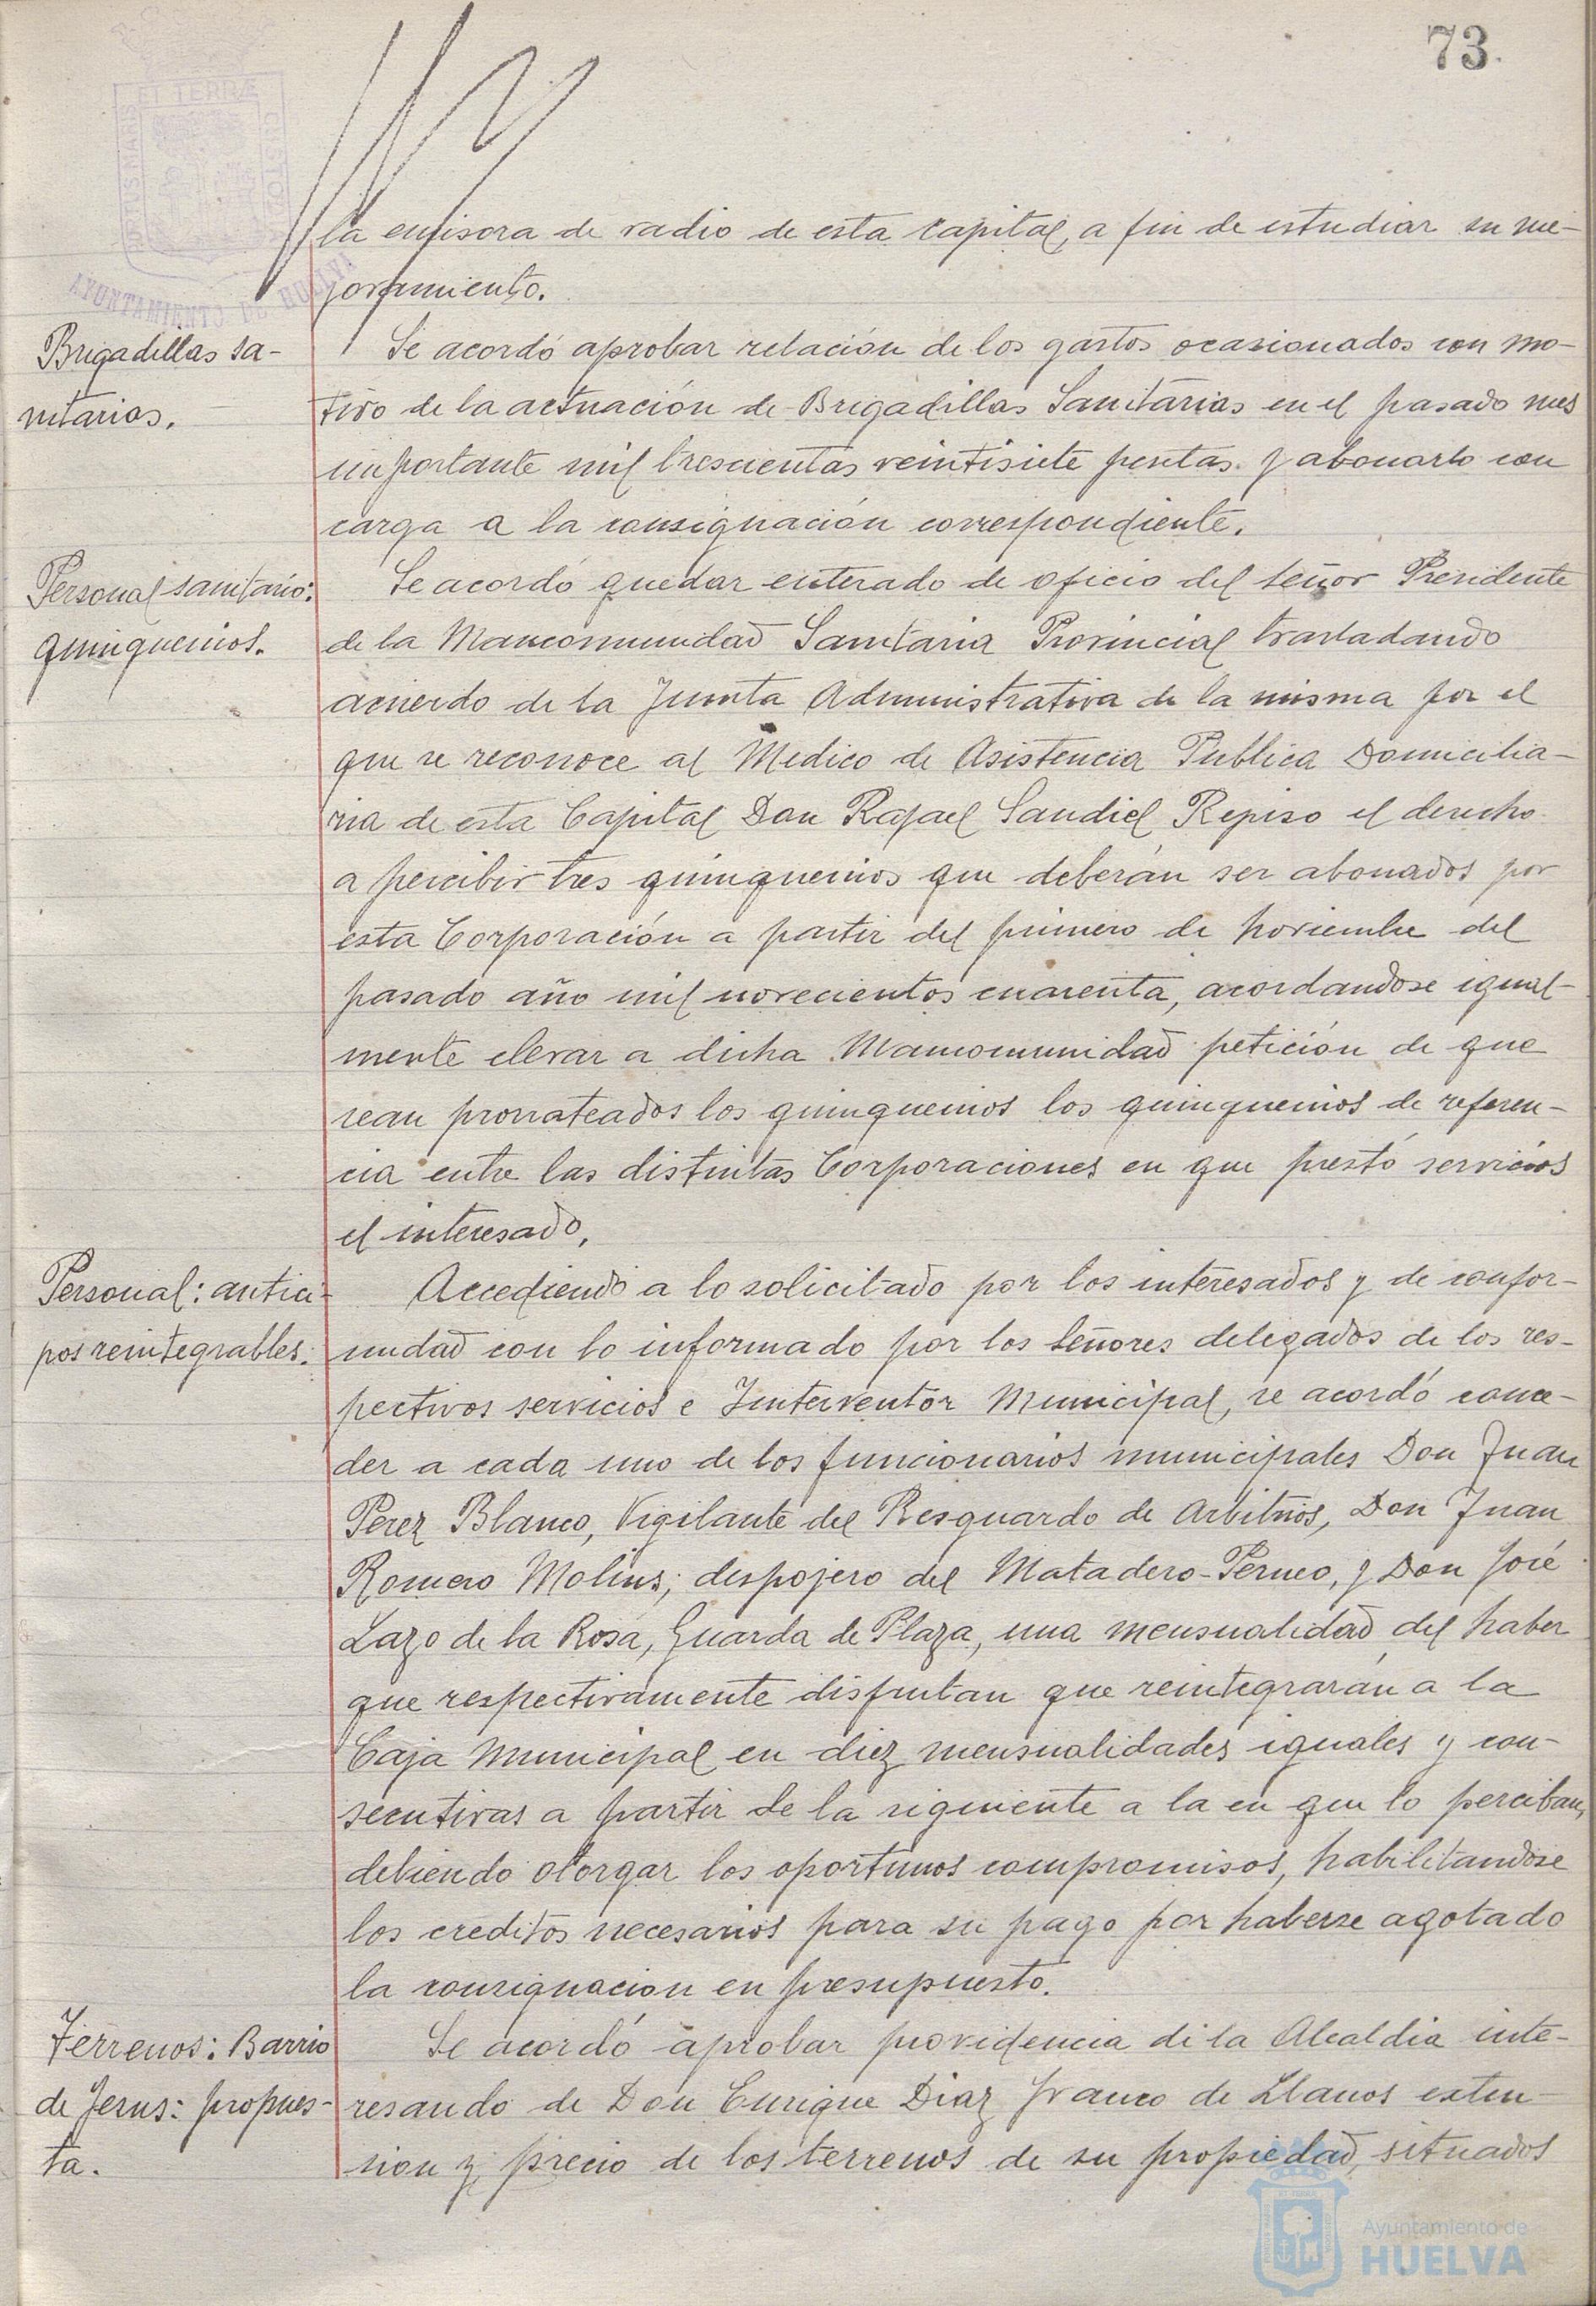 73.
la emisora de radio de esta capital, a fin de estudiar su me-
joramiento.
Brigadillas sa-
nitarias.
Se acordó aprobar relación de los gastos ocasionados con mo-
tivo de la actuación de Brigadillas Sanitarias en el pasado mes
importante mil trescientas veintisiete pesetas y abonarlo con
cargo a la consignación correspondiente.
Personal sanitario:
quinquenios.
Se acordó quedar enterado de oficio del señor Presidente
de la Mancomunidad Sanitaria Provincial trasladando
acuerdo de la Junta Administrativa de la misma por el
que se reconoce al Medico de Asistencia Publica Domicilia-
ria de esta Capital Don Rafael Sandiel Repiso el derecho
a percibir tres quinquenios que deberán ser abonados por
esta Corporación a partir del primero de noviembre del
pasado año mil novecientos cuarenta, acordandose igual-
mente elevar a dicha Mancomunidad petición de que
sean prorrateados los quinquenios los quinquenios de referen-
cia entre las distintas Corporaciones en que prestó servicios
el interesado.
Personal: antici-
pos reintegrables.
Accediendo a lo solicitado por los interesados y de confor-
midad con lo informado por los señores delegados de los res-
pectivos servicios e Interventor Municipal, se acordó conce-
der a cada uno de los funcionarios municipales Don Juan
Perez Blanco, Vigilante del Resguardo de Arbitrios, Don Juan
Romero Molins; despojero del Matadero-Perneo, y Don José
Lazo de la Rosa, Guarda de Plaza, una mensualidad del haber
que respectivamente disfrutan que reintegrarán a la
Caja Municipal en diez mensualidades iguales y con-
secutivas a partir de la siguiente a la en que lo perciban,
debiendo otorgar los oportunos compromisos, habilitandose
los creditos necesarios para su pago por haberse agotado
la consignacion en presupuesto.
Terrenos: Barrio
de Jesus: propues-
ta.
Se acordó aprobar providencia de la Alcaldia inte-
resando de Don Enrique Diaz Franco de Llanos exten-
sion y precio de los terrenos de su propiedad, situados
Ayuntamiento de
HUELVA